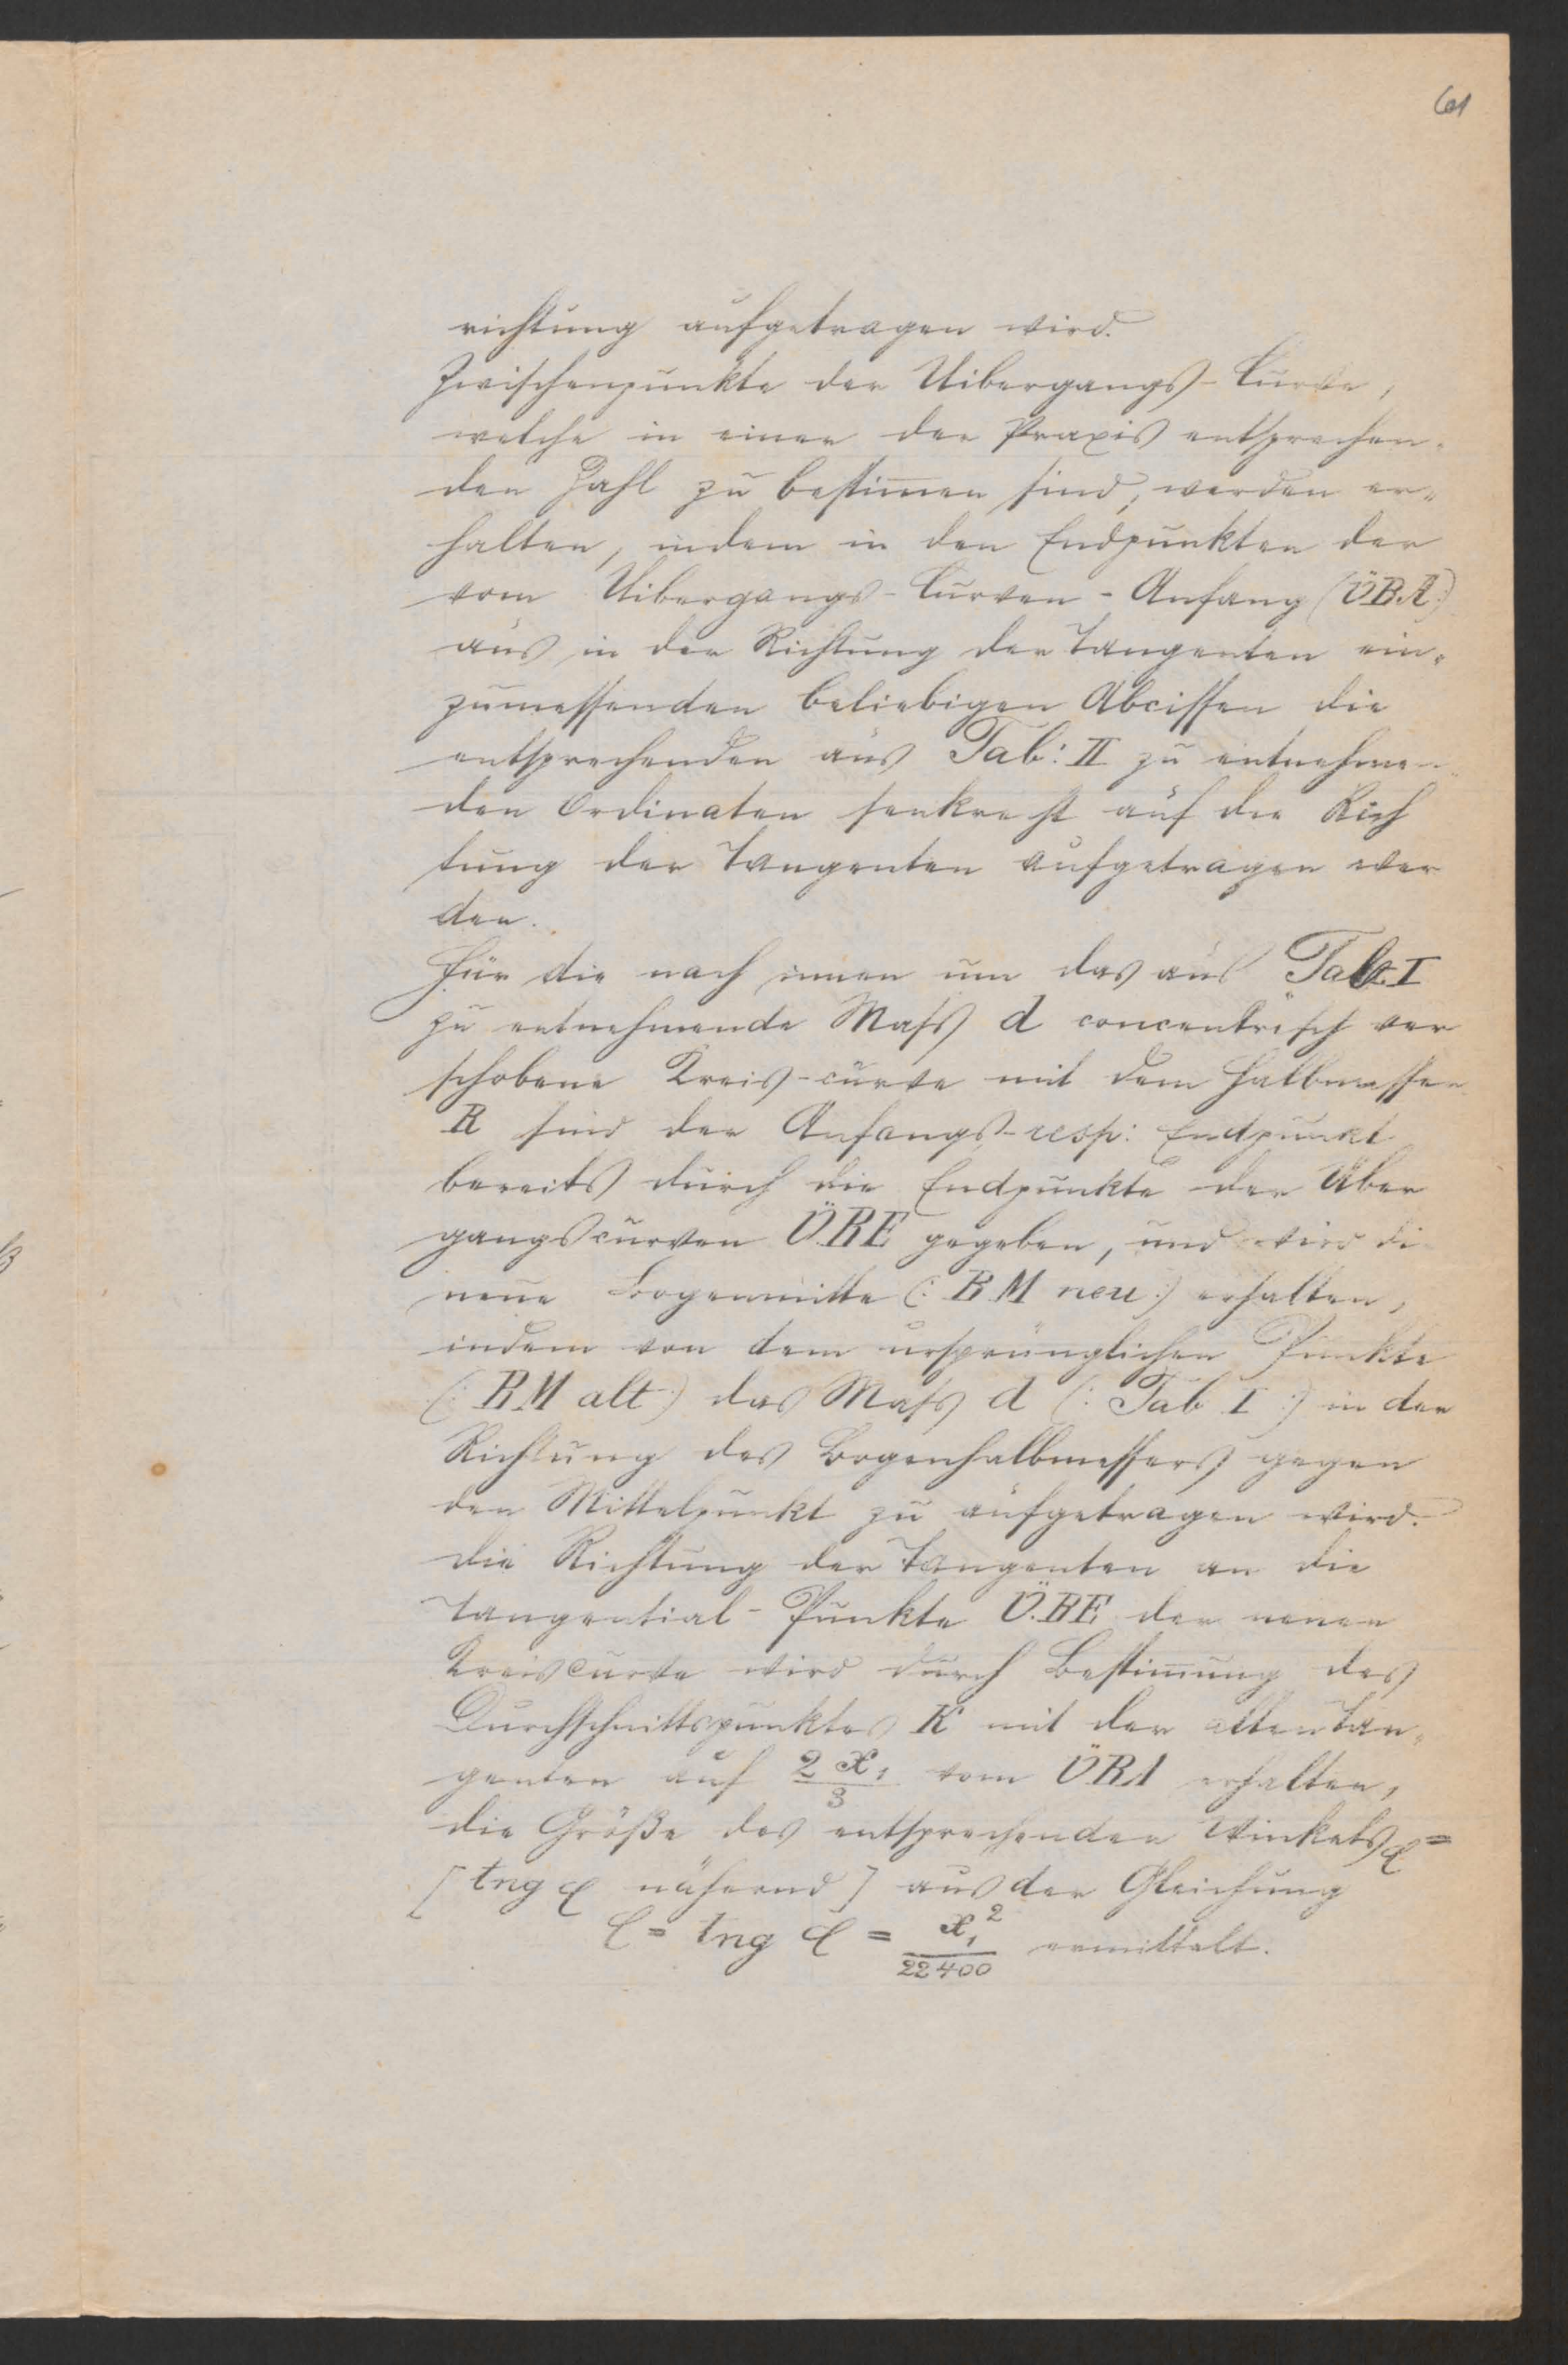 61
richtung aufgetragen wird.
Zwischenpunkte der Uibergangs-Curve,
welche in einer der Praxis entsprechen-
den Zahl zu bestimmen sind, werden er-
halten, indem in den Endpunkten der
vom Uibergangs-Curven-Anfang (ÜBA:)
aus in der Richtung der Tangenten ein-
zumessenden beliebigen Abcissen die
entsprechenden aus Tab: II zu entnehmen-
den Ordinaten senkrecht auf die Rich
tung der Tangenten aufgetragen wer
den.
Für die nach innen um das aus Tab. I
zu entnehmende Maß d concentrisch ver
schobene Kreis-curve mit dem Halbmesser
R sind der Anfangs- resp: Endpunkt
bereits durch die Endpunkte der Über
gangscurven ÜBE gegeben, und wird die
neue Bogenmitte (: BM neu :) erhalten,
indem von dem ursprünglichen Punkte
(: BM alt :) das Maß d (: Tab I :) in der
Richtung des Bogenhalbmessers gegen
den Mittelpunkt zu aufgetragen wird.
Die Richtung der Tangenten an die
Tangential-Punkte Ü.BE der neuen
Kreiscurve wird durch Bestimmung des
Durchschnittspunktes K mit der alten Tan-
genten auf 2 x₁/3 vom ÜBA erhalten,
die Größe des entsprechenden Winkels φ =
[tng φ nähernd] aus der Gleichung
φ = tng φ = x₁²/22400 ermittelt.